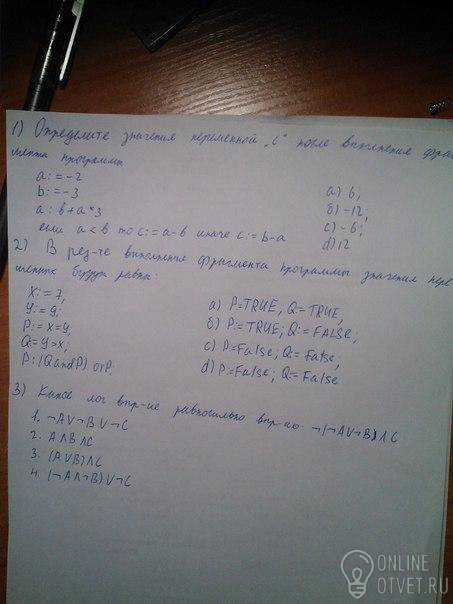 1) Определите значения переменной „С" после выполнения фраг
мента программы
a: = -2
b: = -3
a: b + a * 3
если a < b то c: = a - b иначе c: = b - a
а) 6,
б) -12;
с) - 6;
d) 12
2) В рез-те выполнения фрагмента программы значения пере
менных будут равны:
X: = 7,
Y: = 9;
P: = x = y;
Q = y > x;
P: (Q and P) or P;
а) P=TRUE, Q=TRUE,
б) P:=TRUE; Q:=FALSE;
с) P=False; Q=False;
d) P=False; Q=False
3) Какое лог выр-ие равносильно выр-ю: ¬(¬A∨¬B)∧C
1. ¬A∨¬B∨¬C
2. A∧B∧C
3. (A∨B)∧C
4. (¬A∧¬B)∨¬C
ONLINE
OTVET.RU